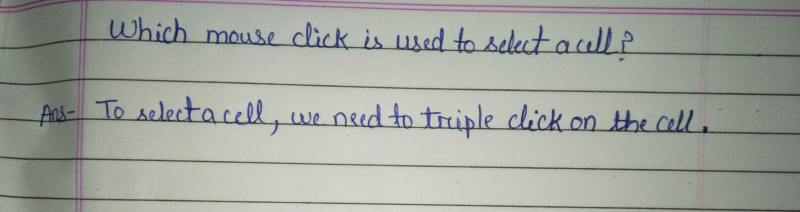 Which mouse click is used to select a cell?
Ans- To select a cell, we need to triple click on the cell.